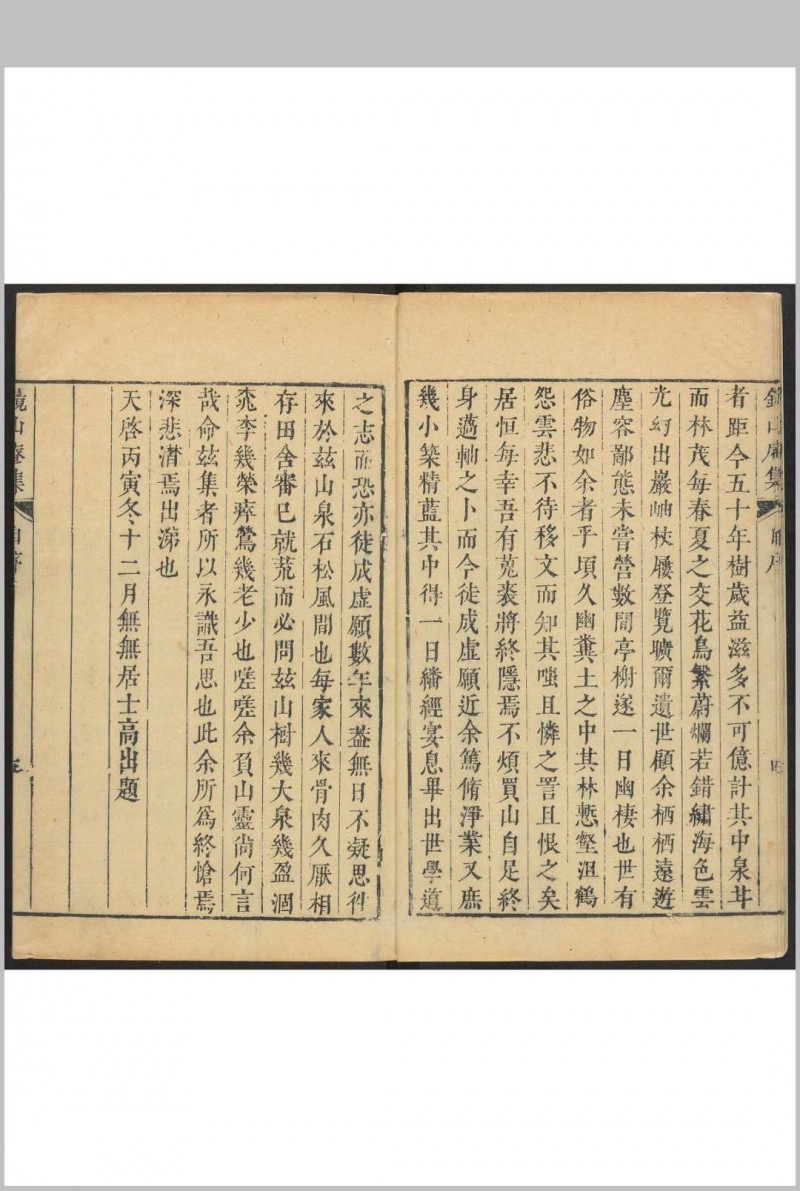 鏡山庵集 自序 四
者距今五十年樹歲益滋多不可億計其中泉井
而林茂每春夏之交花鳥繁蔚爛若錯繡海色雲
光幻出巖岫杖屨登覽曠爾遺世顧余栖栖遠遊
塵容鄙態未嘗營數間亭榭遂一日幽棲也世有
俗物如余者乎頃久幽糞土之中其林慙壑沮鶴
怨雲悲不待移文而知其嗤且憐之詈且恨之矣
居恒每幸吾有菟裘將終隱焉不煩買山自足終
身薖軸之卜而今徒成虛願近余篤脩淨業又庶
幾小築精藍其中得一日繙經宴息畢出世學道
之志而恐亦徒成虛願數年來葢無日不凝思神
來於玆山泉石松風間也每家人來骨肉久厭相
存田舍審已就荒而必問玆山樹幾大泉幾盈涸
桃李幾榮瘁鶯幾老少也嗟嗟余負山靈尚何言
哉命玆集者所以永識吾思也此余所爲終愴焉
深悲潸焉出涕也
天啓丙寅冬十二月無無居士高出題
鏡山庵集 自序 五